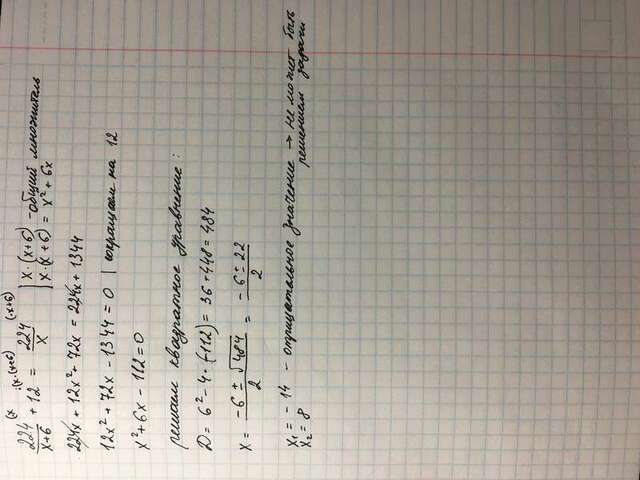 (x ·(x·(x+6) (x+6)
224/(x+6) + 12 = 224/x | x·(x+6) - общий множитель
x·(x+6) = x² + 6x
224x + 12x² + 72x = 224x + 1344
12x² + 72x - 1344 = 0 | сокращаем на 12
x² + 6x - 112 = 0
решаем квадратное уравнение:
D = 6² - 4·(-112) = 36 + 448 = 484
x = (-6 ± √484)/2 = (-6 ± 22)/2
x₁ = -14 - отрицательное значение → не может быть
x₂ = 8 решением задачи